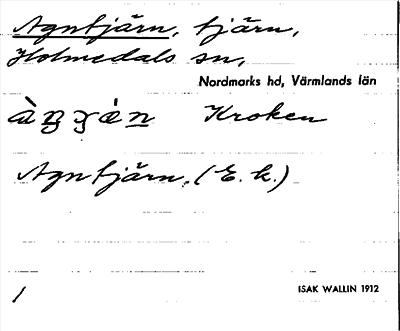 Agntjärn, tjärn,
Holmedals sn,
Nordmarks hd, Värmlands län
Kroken
Agntjärn, (E. k.)
1
ISAK WALLIN 1912